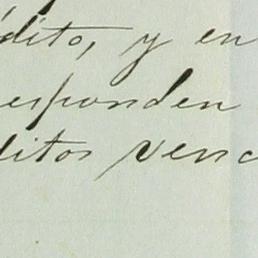 édito, y en
responden
ditos venc